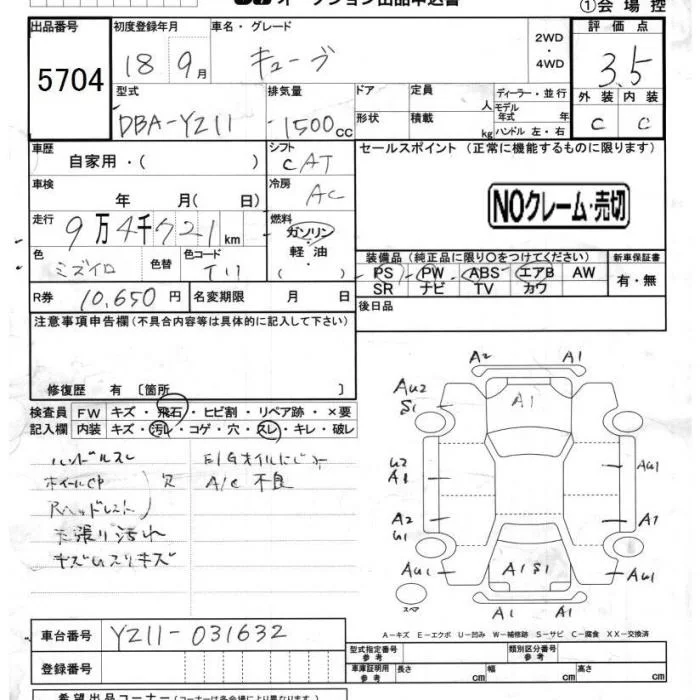 オークション出品申込書
①会場控
出品番号 初度登録年月 車名・グレード 2WD・4WD 評価点
5704 18 9月 キューブ 3.5
型式 排気量 ドア 定員 人 ディーラー・並行 外装 内装
DBA-YZ11 1500cc 形状 積載 kg モデル年式 年 ハンドル 左・右 C C
車歴 自家用・( ) シフト CAT セールスポイント (正常に機能するものに限ります)
車検 年 月( 日) 冷房 AC
NOクレーム・売切
走行 9万4千721km 燃料 ガソリン 軽油 ( )
色 ミズイロ 色替 色コード T11
装備品 (純正品に限り○をつけてください) 新車保証書
PS PW ABS エアB AW 有・無
SR ナビ TV カワ
R券 10,650円 名変期限 月 日 後日品
注意事項申告欄(不具合内容等は具体的に記入して下さい)
修復歴 有 [箇所 ]
検査員 FW キズ・飛石・ヒビ割・リペア跡・×要
記入欄 内装 キズ・汚レ・コゲ・穴・スレ・キレ・破レ
ハンドルスレ E/Gオイルにじミ
ホイールCP 欠 A/C 不良
Rヘッドレスト
天張り汚れ
A2 A1
AU2 S1 A1
U2 A1 AU1
A2 U1 A1
AU1 A1 S1 AU1
スペア A1 A1
A-キズ E-エクボ U-凹み W-補修跡 S-サビ C-腐食 XX-交換済
車台番号 YZ11-031632
登録番号
型式指定番号 参考 類別区分番号 参考
車庫証明用 参考 長さ cm 幅 cm 高さ cm
希望出品コーナー (コーナーは各会場により異なります)